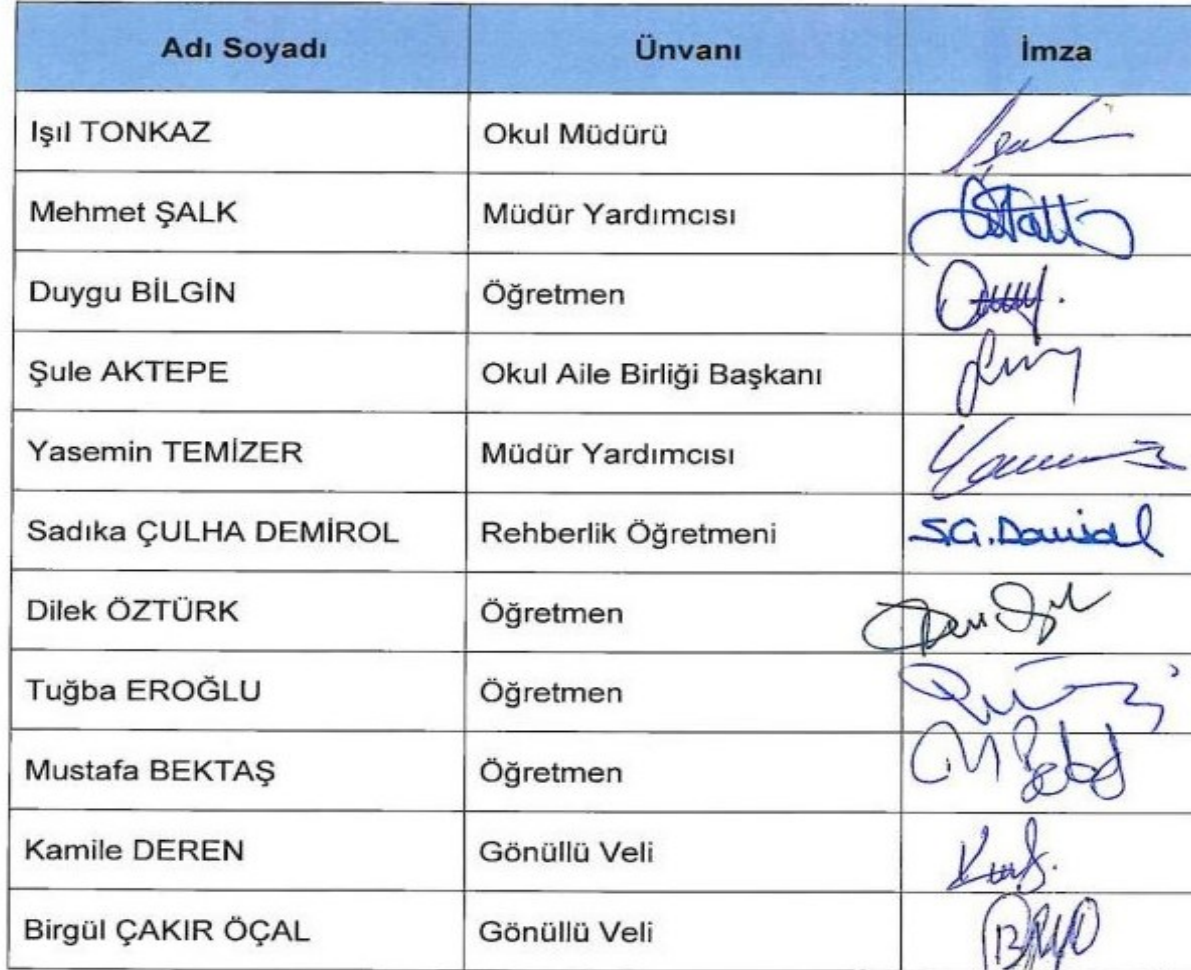 Adı Soyadı Ünvanı İmza
Işıl TONKAZ Okul Müdürü
Mehmet ŞALK Müdür Yardımcısı
Duygu BİLGİN Öğretmen
Şule AKTEPE Okul Aile Birliği Başkanı
Yasemin TEMİZER Müdür Yardımcısı
Sadıka ÇULHA DEMİROL Rehberlik Öğretmeni
Dilek ÖZTÜRK Öğretmen
Tuğba EROĞLU Öğretmen
Mustafa BEKTAŞ Öğretmen
Kamile DEREN Gönüllü Veli
Birgül ÇAKIR ÖÇAL Gönüllü Veli